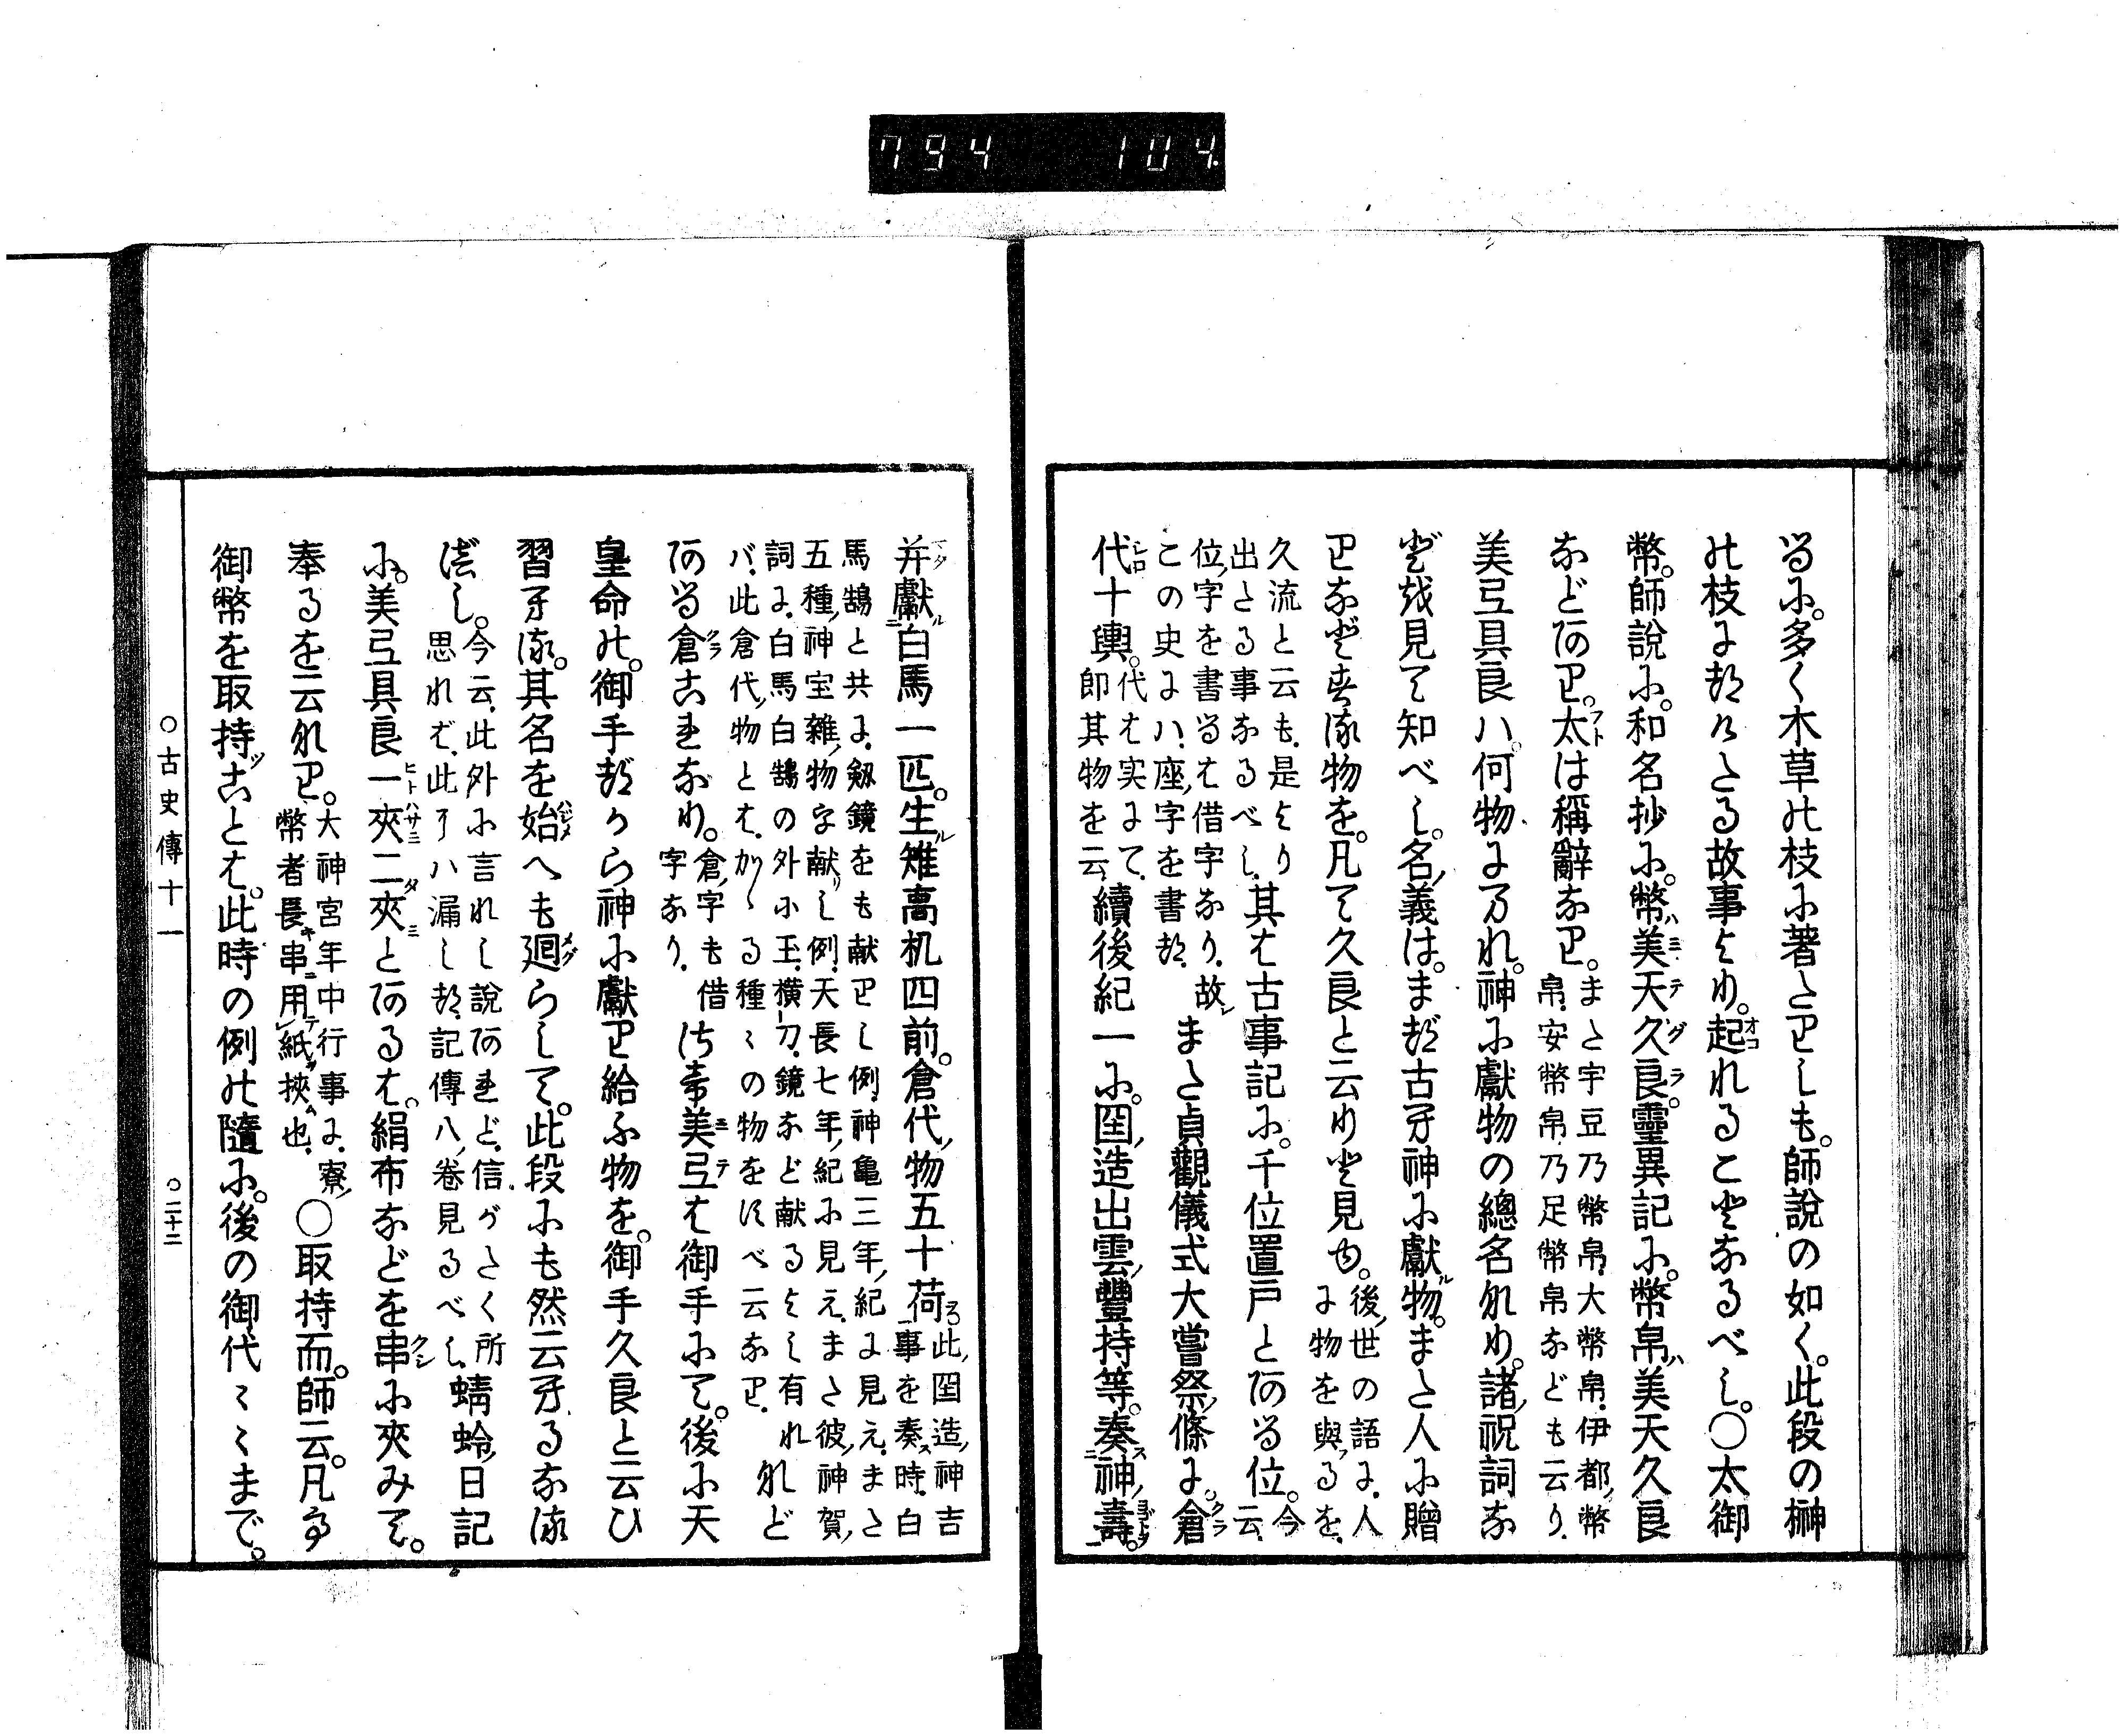 794 104
るに。多く木草の枝に著たりしも。師說の如く。此段の榊
の枝に都けたる故事より。起れることなるべし。〇太御
幣。師說に。和名抄に。幣美天久良。靈異記に。幣帛美天久良
などあり。太は稱辭なり。
また宇豆乃幣帛、大幣帛、伊都幣
帛、安幣帛乃足幣帛なども云り。
美弖具良ハ。何物にまれ。神に獻物の總名なり。諸祝詞な
ど越見て知べし。名義は。まづ古へ神に獻物。また人に贈
りなどする物を。凡て久良と云りと見ゆ。
後世の語に、人
に物を與るを、
久流と云も、是より
出たる事なるべし、
其は古事記に。千位置戸とある位。
今云、
位字を書るは借字なり、故
この史にハ、座字を書都、
また貞觀儀式大嘗祭條に。倉
代十輿。
代は実にて、
即其物を云、
續後紀一に。国造出雲豐持等。奏神壽。
并獻白馬一匹。生雉高机四前。倉代物五十荷。
此国造神吉
事を奏時、白
馬鵠と共に、劔鏡をも献りし例、神亀三年紀に見え、また
五種神宝雜物字献し例、天長七年紀に見え、また彼神賀
詞に、白馬白鵠の外に玉、横刀、鏡など献るよし有れ
バ、此倉代物とは、かゝる種〻の物をすべ云なり、
など
ある倉これなり。
倉字も借
字なり、
さて美弖は御手にて。後に天
皇命の。御手づから神に獻り給ふ物を。御手久良と云ひ
習へる。其名を始へも廻らして。此段にも然云へるなる
べし。
今云、此外に言れし說あれど、信がたく所
思れば、此にハ漏しつ、記傳八卷見るべし、
蜻蛉日記
に。美弖具良一夾二夾とあるは。絹布などを串に夾みて。
奉るを云なり。
大神宮年中行事に、寮
幣者長串用紙挾也、
〇取持而。師云。凡て
御幣を取持ことは。此時の例の隨に。後の御代〻〻まで。
〇古史傳十一 〇二十二